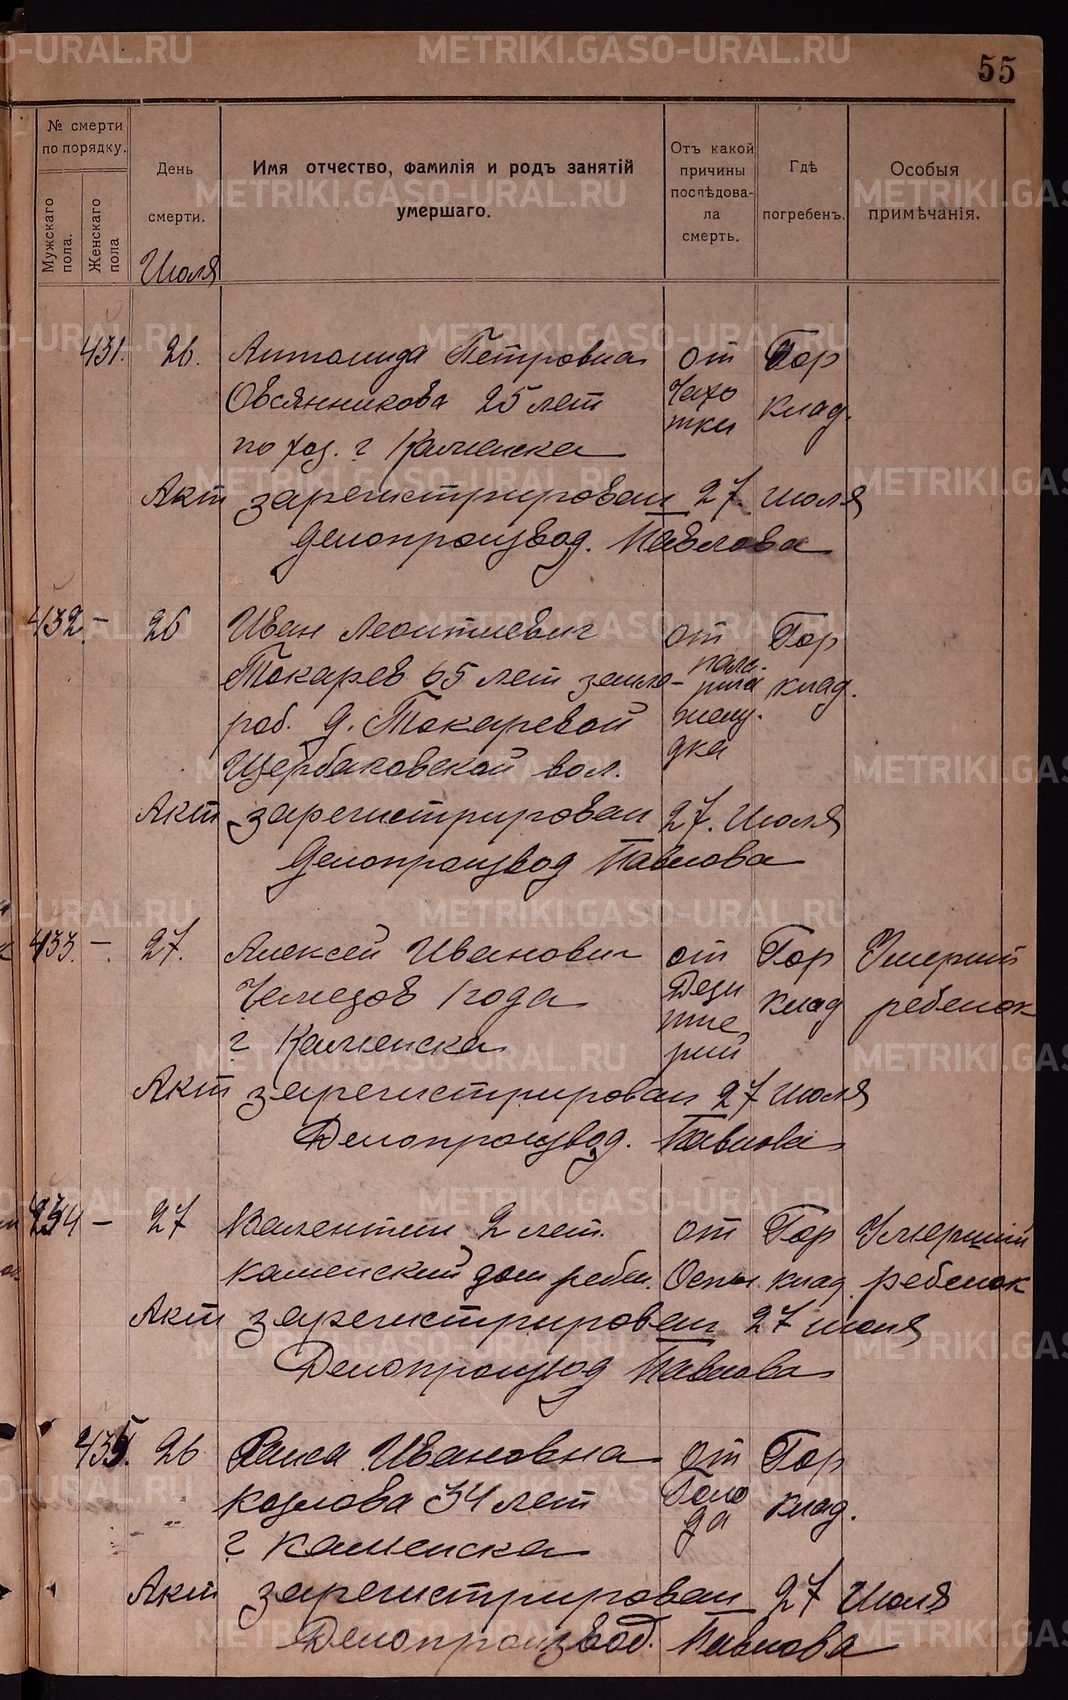 55
№ смерти
по порядку.
Мужскаго
пола.
Женскаго
пола
День
смерти.
Июля
Имя отчество, фамилія и родъ занятій
умершаго.
Отъ какой
причины
послѣдова-
ла
смерть.
Гдѣ
погребенъ.
Особыя
примѣчанія.
431. 26. Антонида Петровна от Гор
Овсянникова 25 лет чахо клад.
по хоз. г Каменска тки
Акт зарегистрирован 27 июля
Делопроизвод. Павлова
432 – 26 Иван Леонтиевич от Гор
Токарев 65 лет земле- клад.
раб. д. Токаревой желу-
Щербаковской вол. дка
Акт зарегистрирован 27. Июля
Делопроизвод Павлова
433. – 27. Алексей Иванович от Гор Умерший
Чемезов 1 года Дези клад ребенок
г Каменска нте
рии
Акт зарегистрирован 27 июля
Делопроизвод. Павлова
434 – 27 Валентин 2 лет. от Гор Умерший
каменский дом ребен. Оспы клад. ребенок
Акт зарегистрирован 27 июля
Делопроизвод Павлова
435. 26 Раиса Ивановна от Гор
Козлова 34 лет Голо клад.
г Каменска да
Акт зарегистрирован 27 Июля
Делопроизвод. Павлова
METRIKI.GASO-URAL.RU